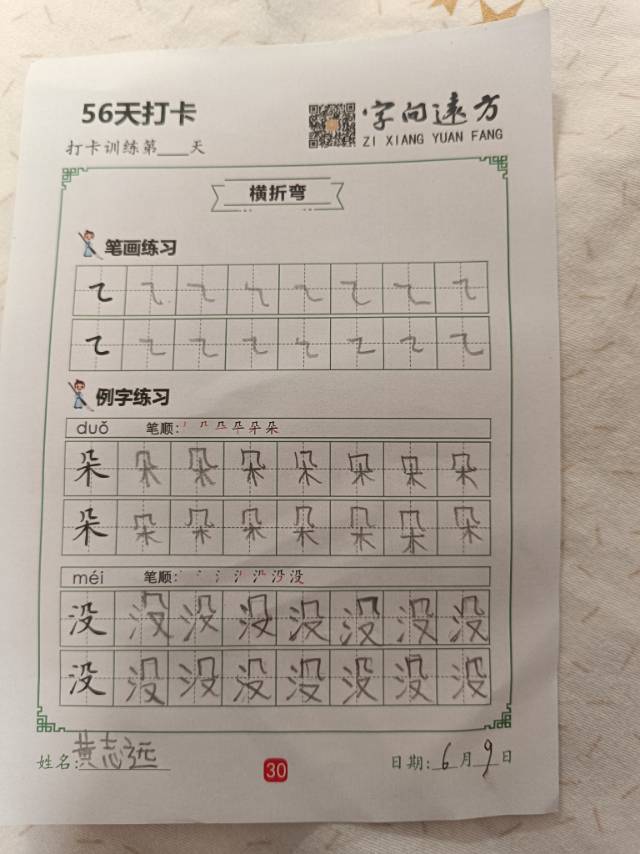 56天打卡
字向遠方
ZI XIANG YUAN FANG
打卡训练第___天
横折弯
笔画练习
㇍ ㇍ ㇍ ㇍ ㇍ ㇍ ㇍ ㇍
㇍ ㇍ ㇍ ㇍ ㇍ ㇍ ㇍ ㇍
例字练习
duǒ 笔顺:
朵 朵 朵 朵 朵 朵 朵 朵
朵 朵 朵 朵 朵 朵 朵 朵
méi 笔顺:
没 没 没 没 没 没 没 没
没 没 没 没 没 没 没 没
姓名:黄志远
30
日期:6月9日